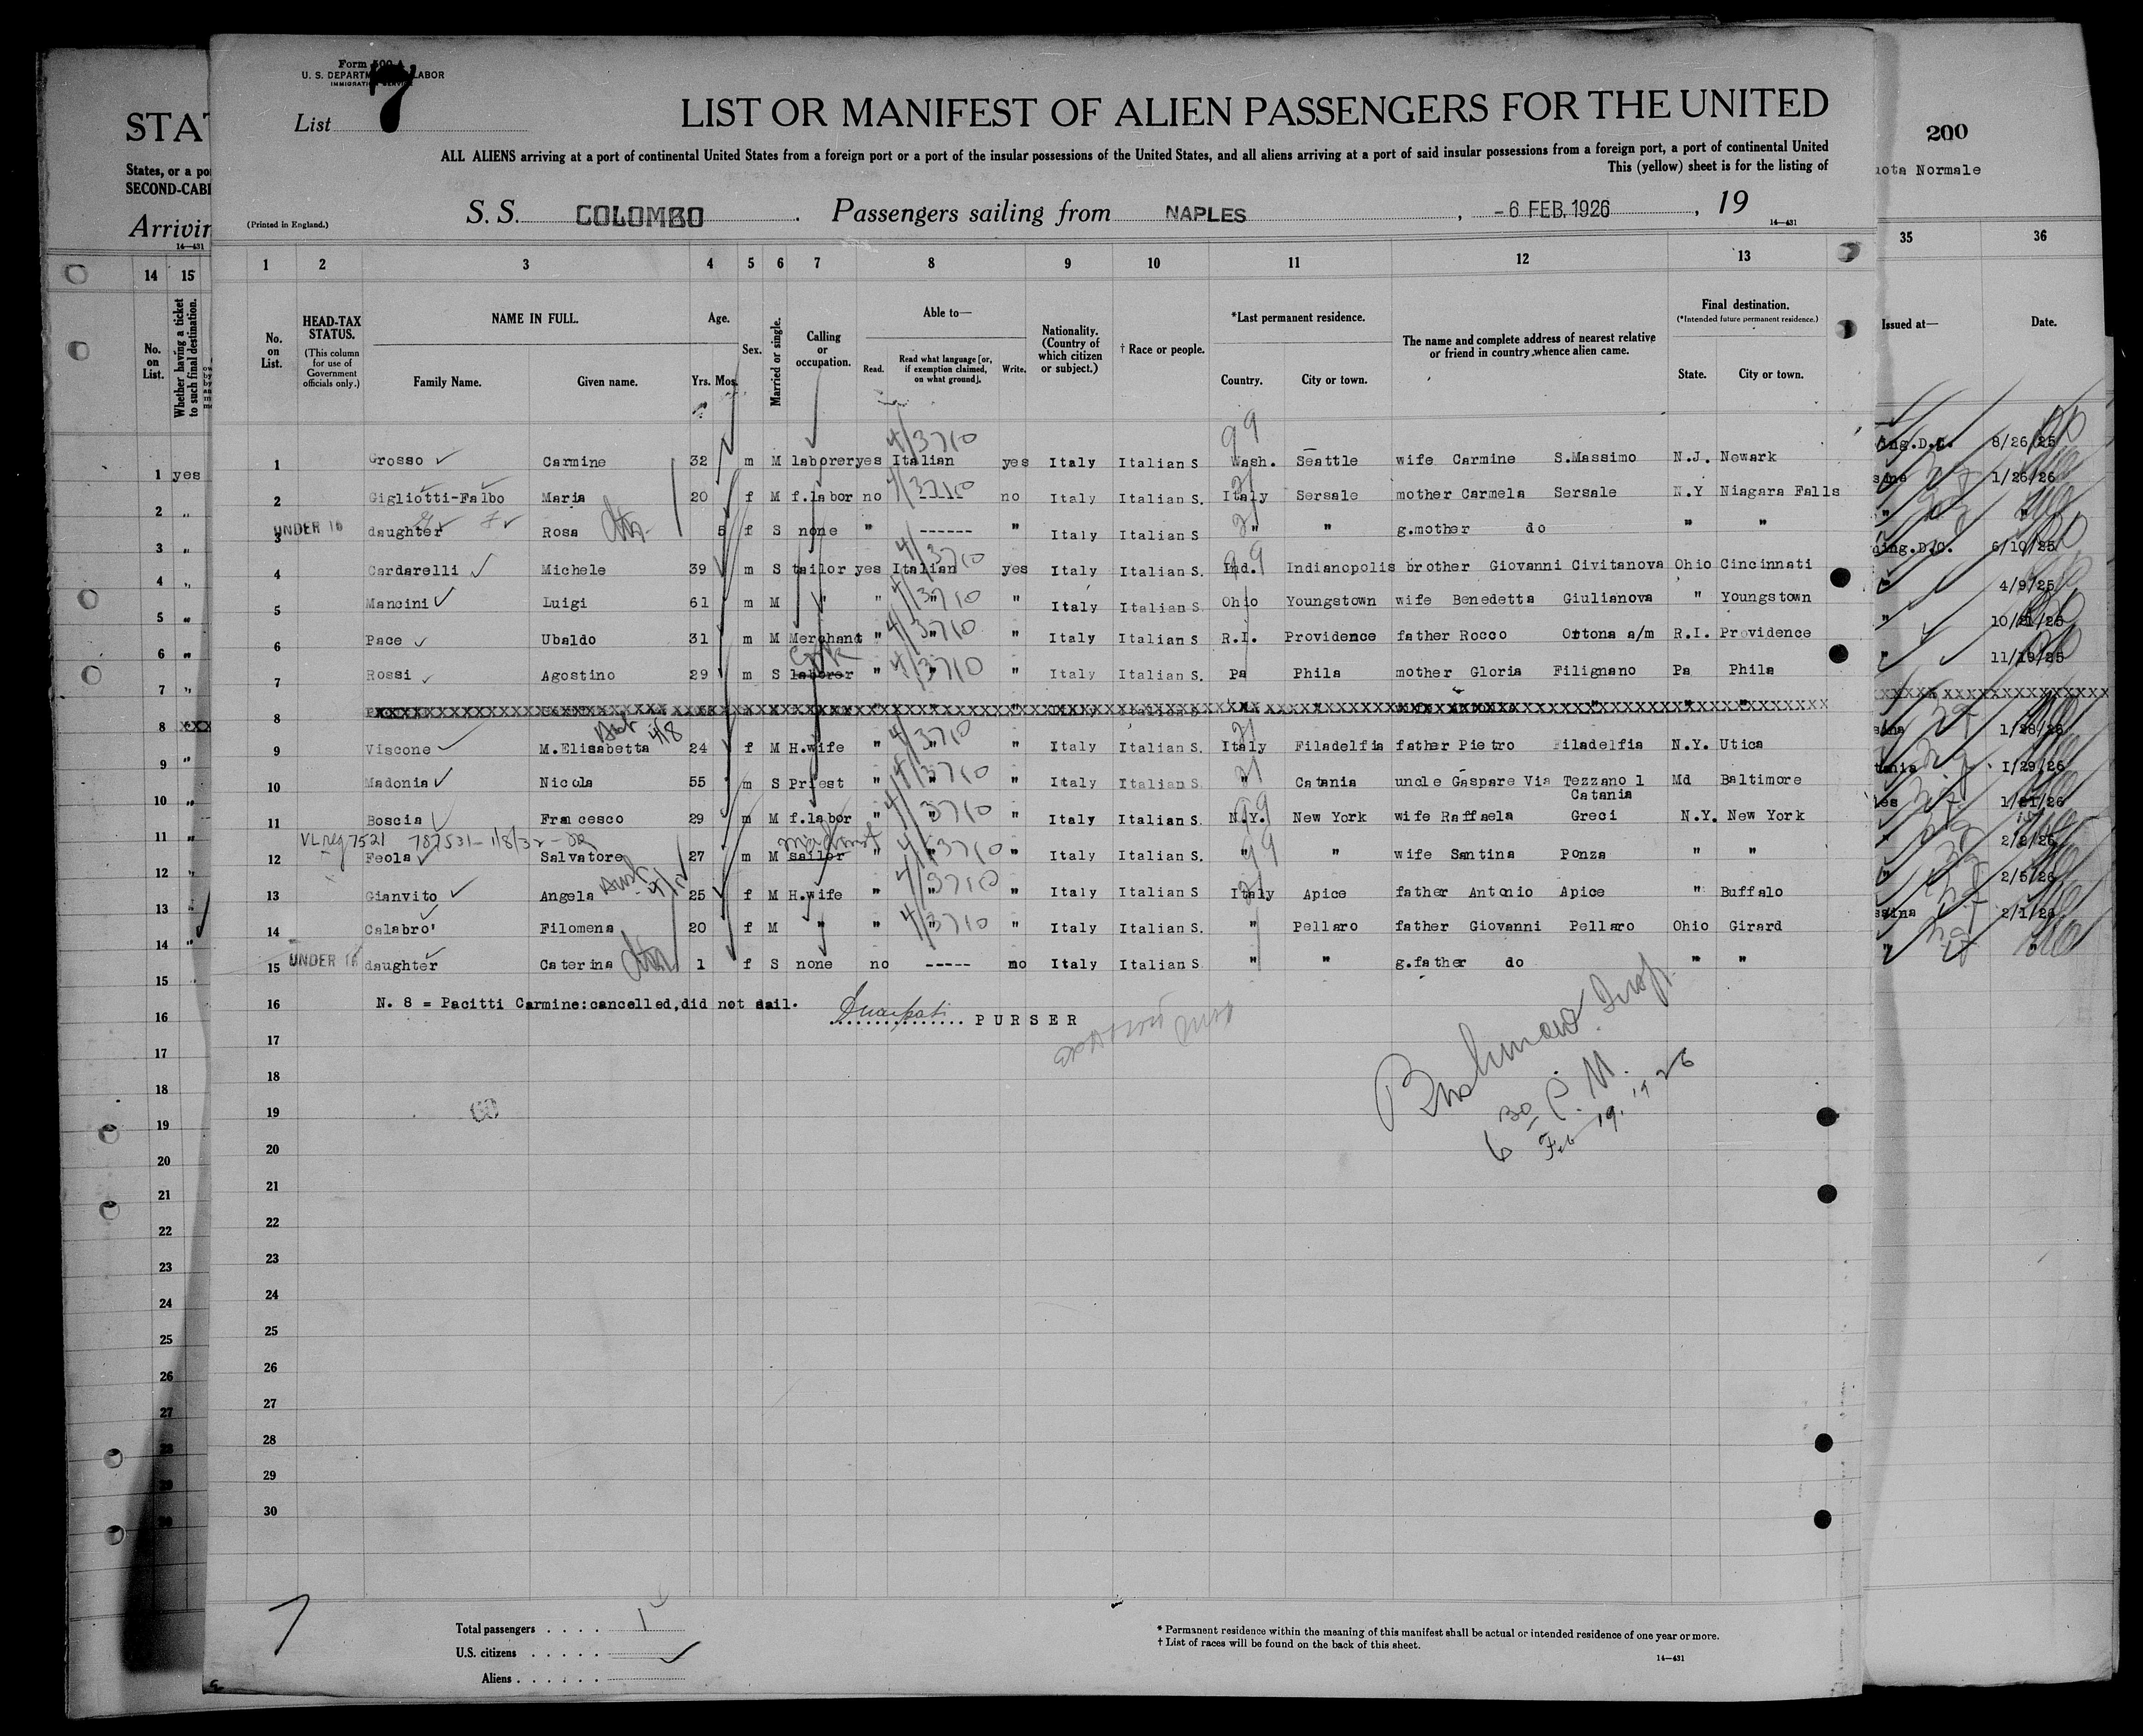 Form 500 A
U. S. DEPARTMENT OF LABOR
IMMIGRATION SERVICE
List 7
LIST OR MANIFEST OF ALIEN PASSENGERS FOR THE UNITED
ALL ALIENS arriving at a port of continental United States from a foreign port or a port of the insular possessions of the United States, and all aliens arriving at a port of said insular possessions from a foreign port, a port of continental United
This (yellow) sheet is for the listing of
(Printed in England.)
S. S. COLOMBO. Passengers sailing from NAPLES, - 6 FEB. 1926, 19
14—431
1 2 3 4 5 6 7 8 9 10 11 12 13
No. on List.
HEAD-TAX STATUS.
(This column for use of Government officials only.)
NAME IN FULL.
Family Name. Given name.
Age.
Yrs. Mos.
Sex.
Married or single.
Calling or occupation.
Able to—
Read. Read what language [or, if exemption claimed, on what ground]. Write.
Nationality. (Country of which citizen or subject.)
† Race or people.
*Last permanent residence.
Country. City or town.
The name and complete address of nearest relative or friend in country whence alien came.
Final destination.
(*Intended future permanent residence.)
State. City or town.
1 Grosso Carmine 32 m M laborer yes Italian yes Italy Italian S Wash. Seattle wife Carmine S.Massimo N.J. Newark
2 Gigliotti-Falbo Maria 20 f M f.labor no ----- no Italy Italian S Italy Sersale mother Carmela Sersale N.Y Niagara Falls
UNDER 16
3 daughter Rosa 5 f S none " ------ " Italy Italian S " " g.mother do " "
4 Cardarelli Michele 39 m S tailor yes Italian yes Italy Italian S. Ind. Indianopolis brother Giovanni Civitanova Ohio Cincinnati
5 Mancini Luigi 61 m M " " " " Italy Italian S. Ohio Youngstown wife Benedetta Giulianova " Youngstown
6 Pace Ubaldo 31 m M Merchant " " " Italy Italian S R.I. Providence father Rocco Ortona a/m R.I. Providence
7 Rossi Agostino 29 m S laborer " " " Italy Italian S. Pa Phila mother Gloria Filignano Pa Phila
8
9 Viscone M.Elisabetta 24 f M H.wife " " " Italy Italian S. Italy Filadelfia father Pietro Filadelfia N.Y. Utica
10 Madonia Nicola 55 m S Priest " " " Italy Italian S. " Catania uncle Gaspare Via Tezzano 1 Md Baltimore
Catania
11 Boscia Francesco 29 m M f.labor " " " Italy Italian S. N.Y. New York wife Raffaela Greci N.Y. New York
VL reg 7521 787531 - 1/8/32
12 Feola Salvatore 27 m M sailor " " " Italy Italian S " " wife Santina Ponza " "
13 Gianvito Angela 25 f M H.wife " " " Italy Italian S Italy Apice father Antonio Apice " Buffalo
14 Calabro' Filomena 20 f M " " " " Italy Italian S. " Pellaro father Giovanni Pellaro Ohio Girard
UNDER 16
15 daughter Caterina 1 f S none no ----- no Italy Italian S " " g.father do " "
16 N. 8 = Pacitti Carmine:cancelled,did not sail.
PURSER
6 30 P. M.
Feb 19. 1926
17
18
19
20
21
22
23
24
25
26
27
28
29
30
7
Total passengers . . . .
U.S. citizens . . . . .
Aliens . . . . . .
* Permanent residence within the meaning of this manifest shall be actual or intended residence of one year or more.
† List of races will be found on the back of this sheet.
14—431
STAT
States, or a po
SECOND-CABI
Arrivin
14—431
14 15
No. on List.
Whether having a ticket to such final destination.
1 yes
2 "
3 "
4 "
5 "
6 "
7 "
8
9 "
10 "
11 "
12 "
13 "
14 "
15
16
17
18
19
20
21
22
23
24
25
26
27
28
29
30
200
uota Normale
35 36
Issued at— Date.
ing.D.C. 8/26/25
1/26/26
"
ing.D.C. 6/10/25
" 4/9/25
" 10/21/25
" 11/19/25
1/28/26
1/29/26
1/21/26
" 2/2/26
" 2/5/26
ssina 2/1/26
" "